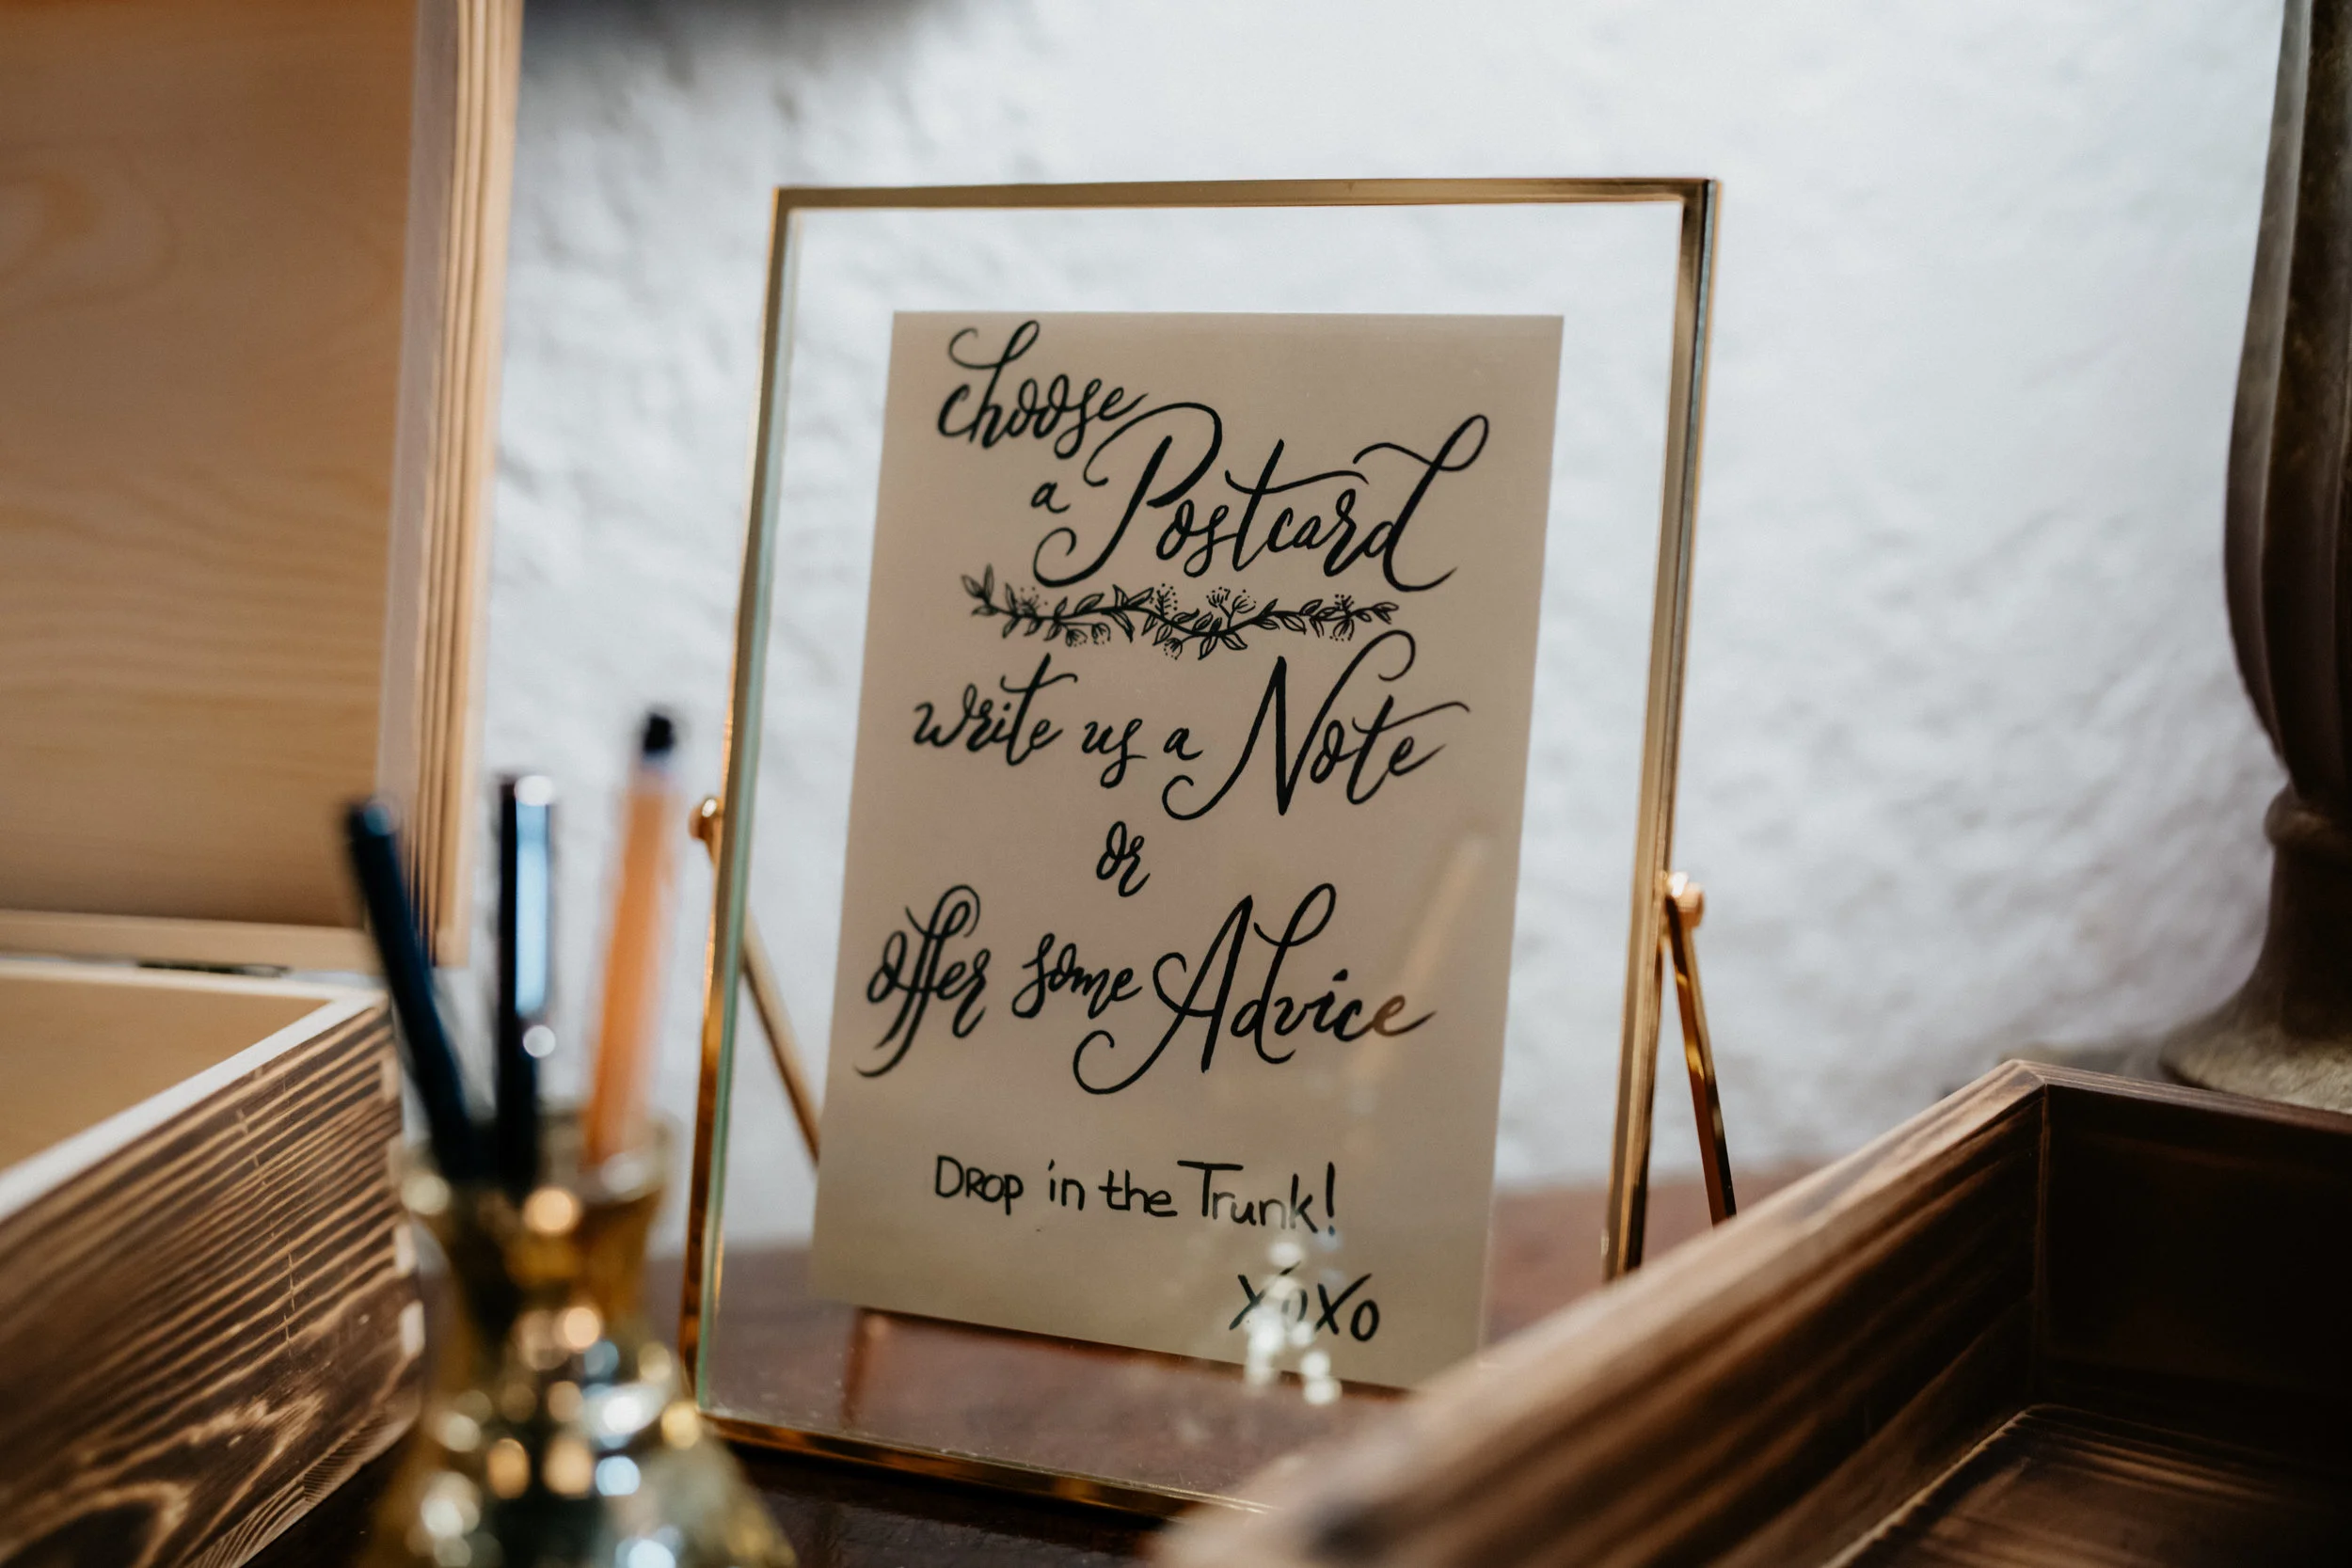 choose
a Postcard
write us a Note
or
offer some Advice
DROP in the Trunk!
XOXO